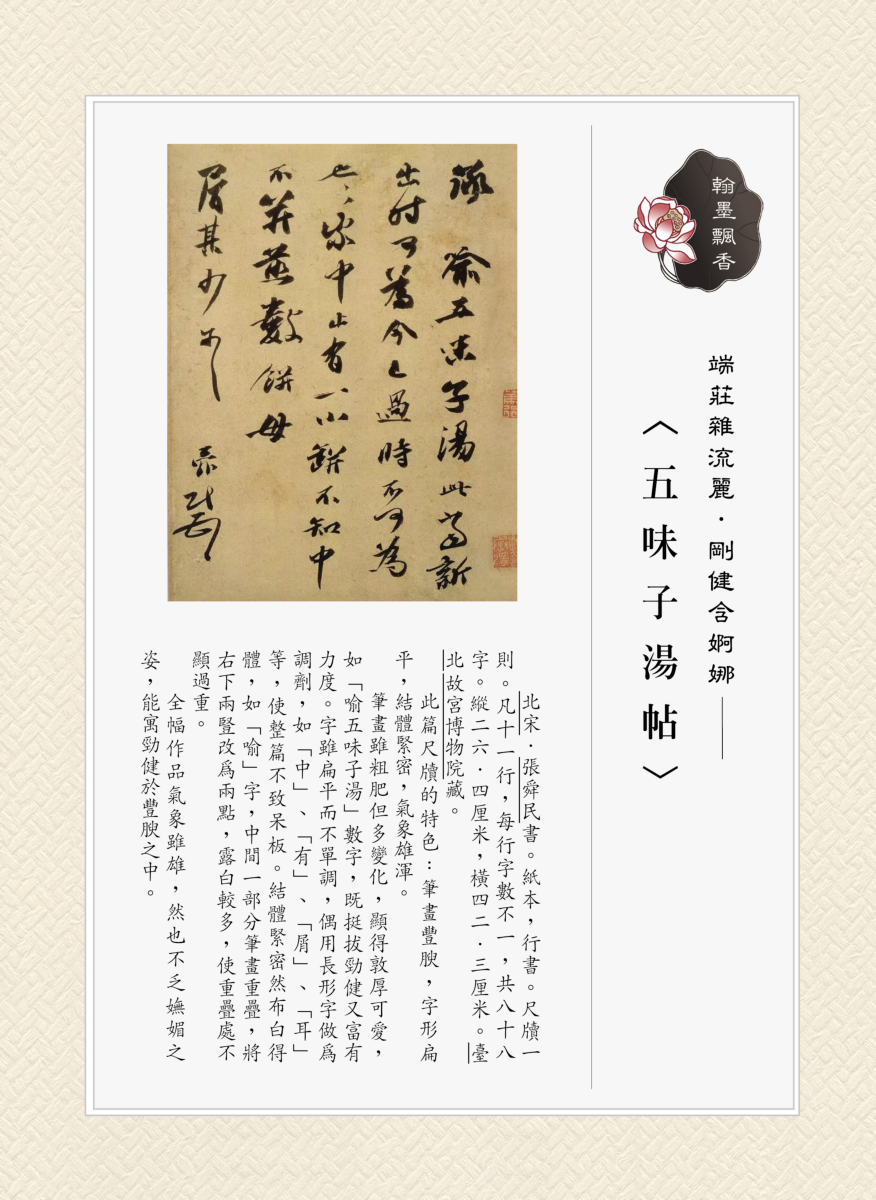 翰墨飄香
端莊雜流麗．剛健含婀娜——
〈五味子湯帖〉
承 喻五味子湯此新
出時可為今已過時不可為
也家中止有一小缾不知中
不
屑某少耳
北宋．張舜民書。紙本，行書。尺牘一
則。凡十一行，每行字數不一，共八十八
字。縱二六．四厘米，橫四二．三厘米。臺
北故宮博物院藏。
此篇尺牘的特色：筆畫豐腴，字形扁
平，結體緊密，氣象雄渾。
筆畫雖粗肥但多變化，顯得敦厚可愛，
如「喻五味子湯」數字，既挺拔勁健又富有
力度。字雖扁平而不單調，偶用長形字做爲
調劑，如「中」、「有」、「屑」、「耳」
等，使整篇不致呆板。結體緊密然布白得
體，如「喻」字，中間一部分筆畫重疊，將
右下兩豎改爲兩點，露白較多，使重疊處不
顯過重。
全幅作品氣象雖雄，然也不乏嫵媚之
姿，能寓勁健於豐腴之中。